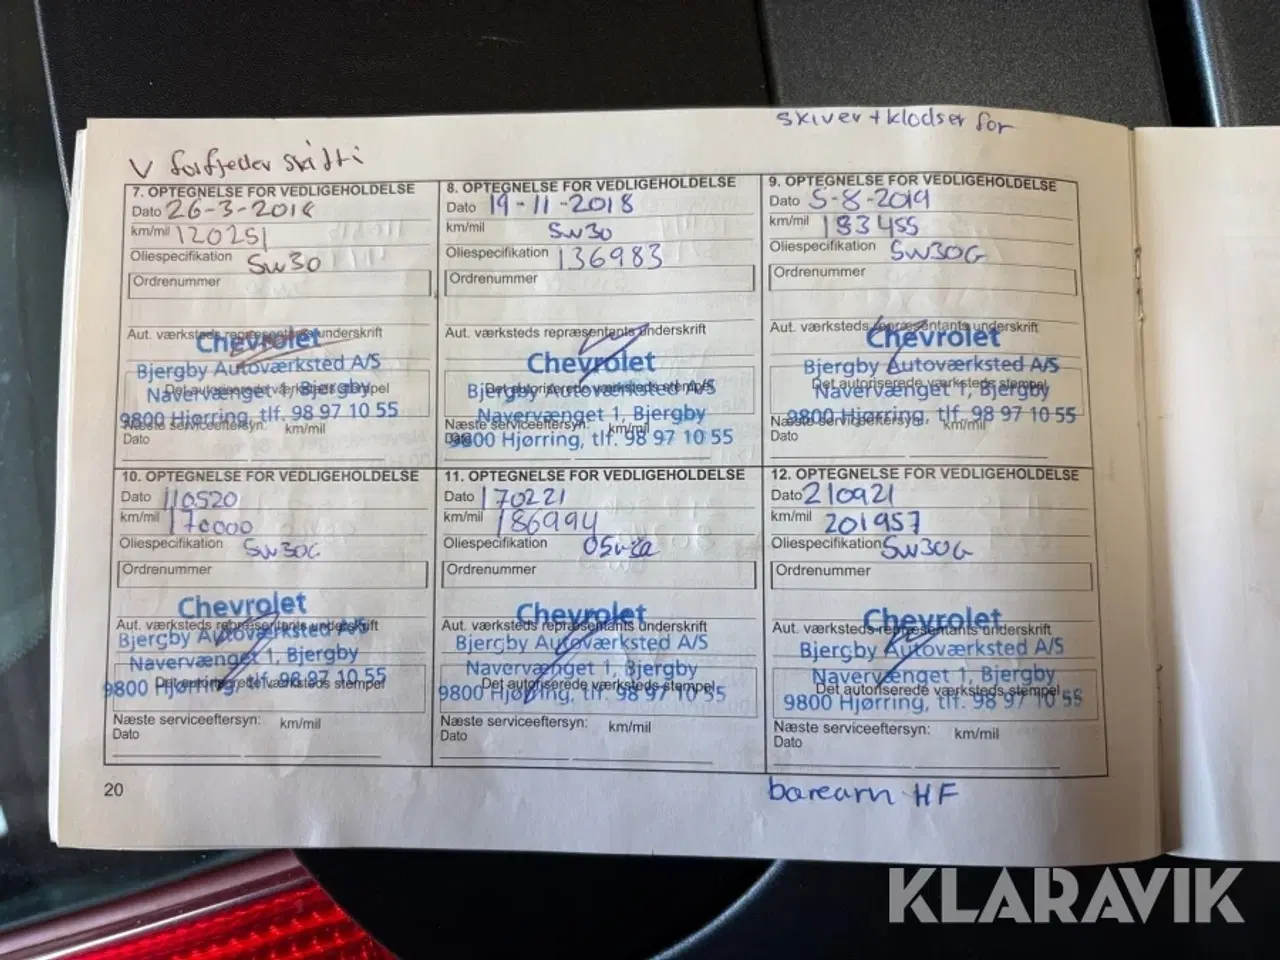 skiver + klodser for
V forfjeder skifti
7. OPTEGNELSE FOR VEDLIGEHOLDELSE
Dato 26-3-2018
km/mil 120251
Oliespecifikation 5w30
Ordrenummer
Aut. værksteds repræsentants underskrift
Chevrolet
Bjergby Autoværksted A/S
Det autoriserede værksteds stempel
Navervænget 1, Bjergby
9800 Hjørring, tlf. 98 97 10 55
Næste serviceeftersyn: km/mil
Dato
8. OPTEGNELSE FOR VEDLIGEHOLDELSE
Dato 19-11-2018
km/mil 5w30
Oliespecifikation 136983
Ordrenummer
Aut. værksteds repræsentants underskrift
Chevrolet
Bjergby Autoværksted A/S
Det autoriserede værksteds stempel
Navervænget 1, Bjergby
Næste serviceeftersyn: km/mil
Dato
9800 Hjørring, tlf. 98 97 10 55
9. OPTEGNELSE FOR VEDLIGEHOLDELSE
Dato 5-8-2019
km/mil 153455
Oliespecifikation 5w30G
Ordrenummer
Aut. værksteds repræsentants underskrift
Chevrolet
Bjergby Autoværksted A/S
Det autoriserede værksteds stempel
Navervænget 1, Bjergby
9800 Hjørring, tlf. 98 97 10 55
Næste serviceeftersyn: km/mil
Dato
10. OPTEGNELSE FOR VEDLIGEHOLDELSE
Dato 110520
km/mil 170000
Oliespecifikation 5w30G
Ordrenummer
Chevrolet
Aut. værksteds repræsentants underskrift
Bjergby Autoværksted A/S
Navervænget 1, Bjergby
Det autoriserede værksteds stempel
9800 Hjørring, tlf. 98 97 10 55
Næste serviceeftersyn: km/mil
Dato
11. OPTEGNELSE FOR VEDLIGEHOLDELSE
Dato 170221
km/mil 186994
Oliespecifikation
Ordrenummer
Chevrolet
Aut. værksteds repræsentants underskrift
Bjergby Autoværksted A/S
Navervænget 1, Bjergby
Det autoriserede værksteds stempel
9800 Hjørring, tlf. 98 97 10 55
Næste serviceeftersyn: km/mil
Dato
12. OPTEGNELSE FOR VEDLIGEHOLDELSE
Dato 210921
km/mil 201957
Oliespecifikation 5w30G
Ordrenummer
Chevrolet
Aut. værksteds repræsentants underskrift
Bjergby Autoværksted A/S
Navervænget 1, Bjergby
Det autoriserede værksteds stempel
9800 Hjørring, tlf. 98 97 10 55
Næste serviceeftersyn: km/mil
Dato
20
bærearm HF
KLARAVIK